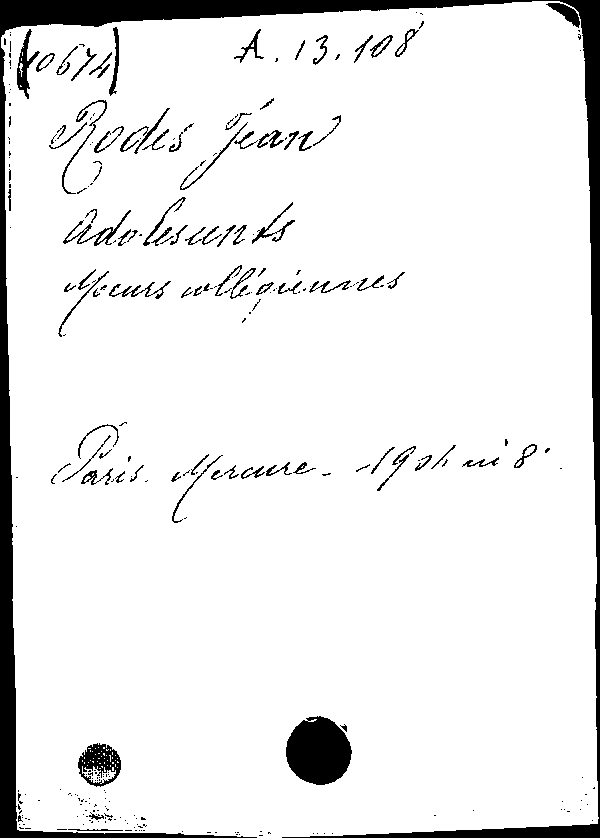 (10674) A. 13. 108
Rodes Jean
Adolescents
Moeurs collégiennes
Paris. Mercure - 1904 in 8°